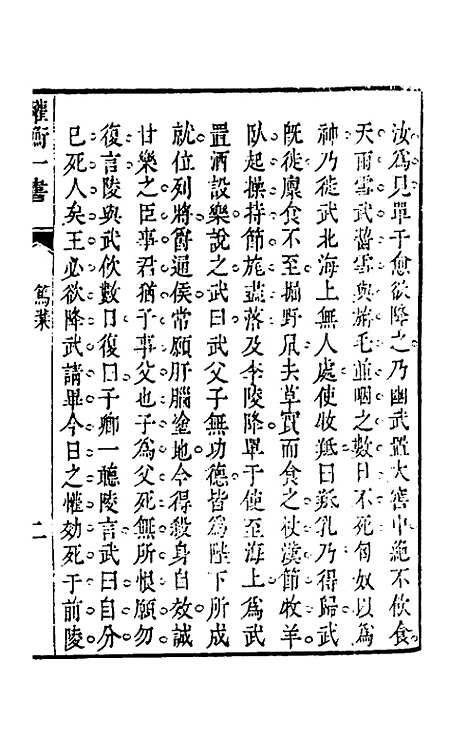 汝爲見單于愈欲降之乃幽武置大窖中絶不飲食
天雨雪武齧雪與旃毛並咽之數日不死匈奴以爲
神乃徙武北海上無人處使牧羝曰羝乳乃得歸武
旣徙廪食不至掘野鼠去草實而食之杖漢節牧羊
臥起操持節旄盡落及李陵降單于使至海上爲武
置酒設樂說之武曰武父子無功德皆爲陛下所成
就位列將爵通侯常願肝腦塗地今得殺身自效誠
甘樂之臣事君猶子事父也子爲父死無所恨願勿
復言陵與武飲數日復曰子卿一聽陵言武曰自分
已死人矣王必欲降武請畢今日之懽効死于前陵
衡一書
二